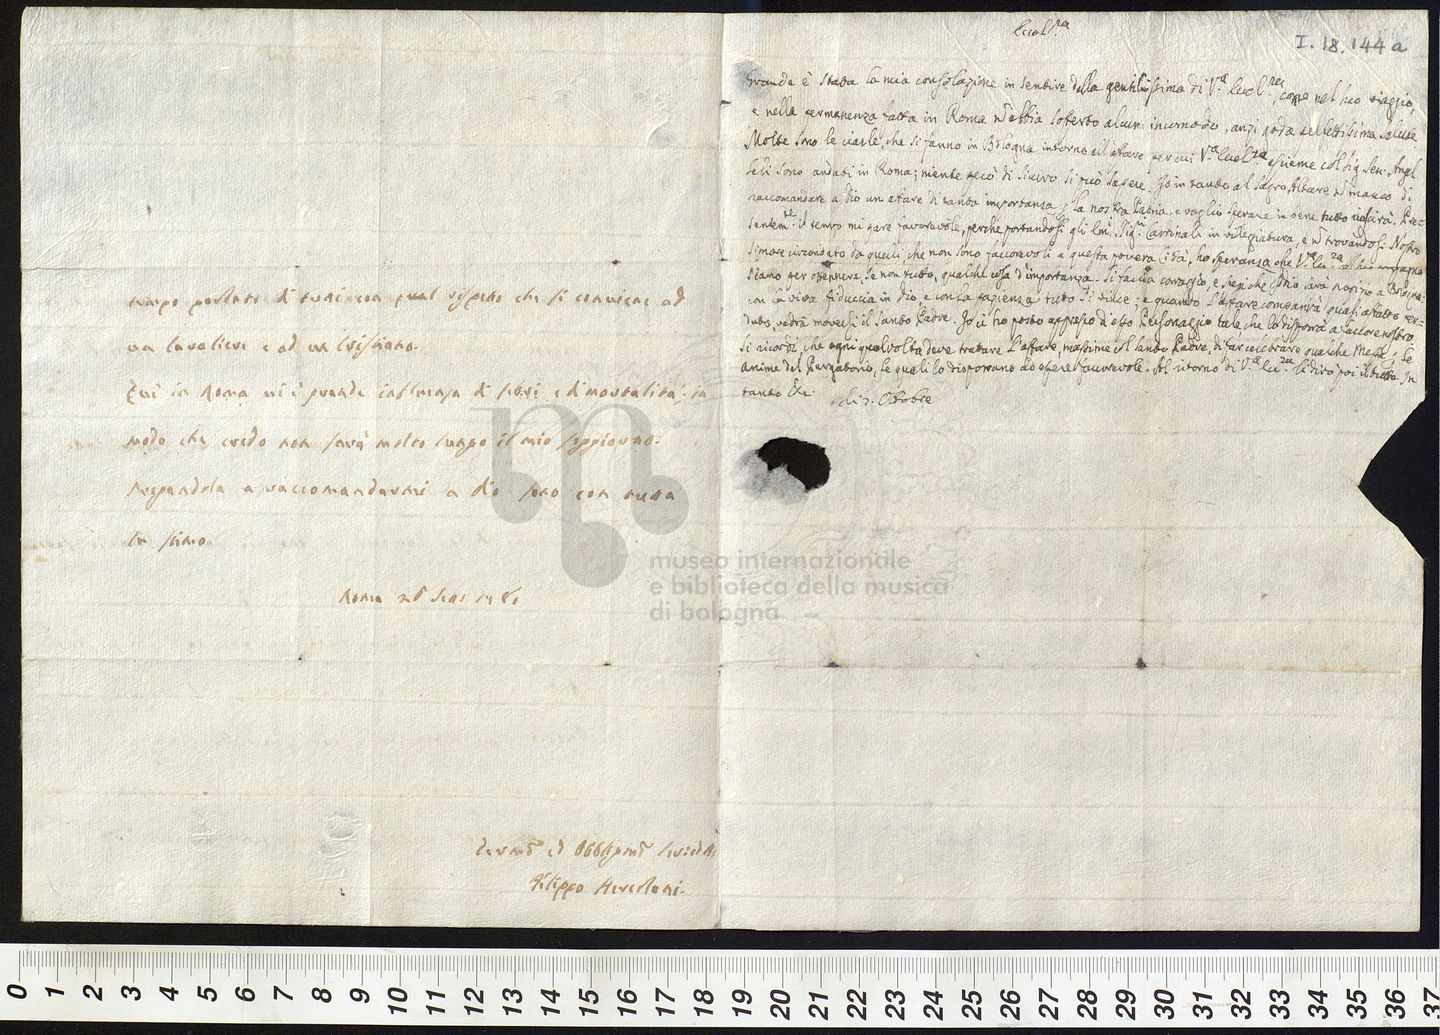 tempo parlato di tutti con qual rispetto che si conviene ad
un Cavaliere e ad un Cristiano.
Qui in Roma vi è grande influenza di febri e di mortalità, in
modo che credo non sarà molto lungo il mio soggiorno.
Pregandola a raccomandarmi a Dio sono con tutta
la stima
Roma
Filippo Hercolani
I. 18. 144 a
Grande è stata la mia consolazione in sentire dalla gentilissima di V.ª come nel suo viaggio,
e nella permanenza fatta in Roma abbia sofferto alcun incomodo, anzi goda salute.
Molte sono le ciarle, che si fanno in Bologna intorno all'affare per cui V.ª Sig. Sen.
sono andati in Roma; niente però di sicuro si può sapere. Io in tanto al Sagro Altare manco di
raccomandare a Dio un affare di tanta importanza la nostra Patria, e voglio sperare in bene tutto riuscirà. Pre-
sentem.te il tempo mi pare favorevole, perche portandosi gli Sig.ri Cardinali in villeggiatura, e trovandosi Nostro
Signore circondato da quelli che non sono favorevoli a questa povera Città, ho speranza che V.ª
siano per ottenere, se non tutto, qualche cosa d'importanza. Si faccia coraggio, e
con viva fiducia in Dio, e con la pazienza tutto si vince; e quando l'affare comparirà quasi affatto per-
duto, vedrà moversi il Santo Padre. Io ho posto appresso d'esso Personaggio tale che lo disporrà a favore nostro
Si ricordi, che ogni qual volta deve trattare l'affare, massime col Santo Padre, di far celebrare qualche Messa le
Anime del Purgatorio, le quali lo disporrano ad essere favorevole. Al ritorno di V.ª le dirò poi il tutto. In
tanto &c. li 7. Ottobre
museo internazionale
e biblioteca della musica
di bologna
0 1 2 3 4 5 6 7 8 9 10 11 12 13 14 15 16 17 18 19 20 21 22 23 24 25 26 27 28 29 30 31 32 33 34 35 36 37